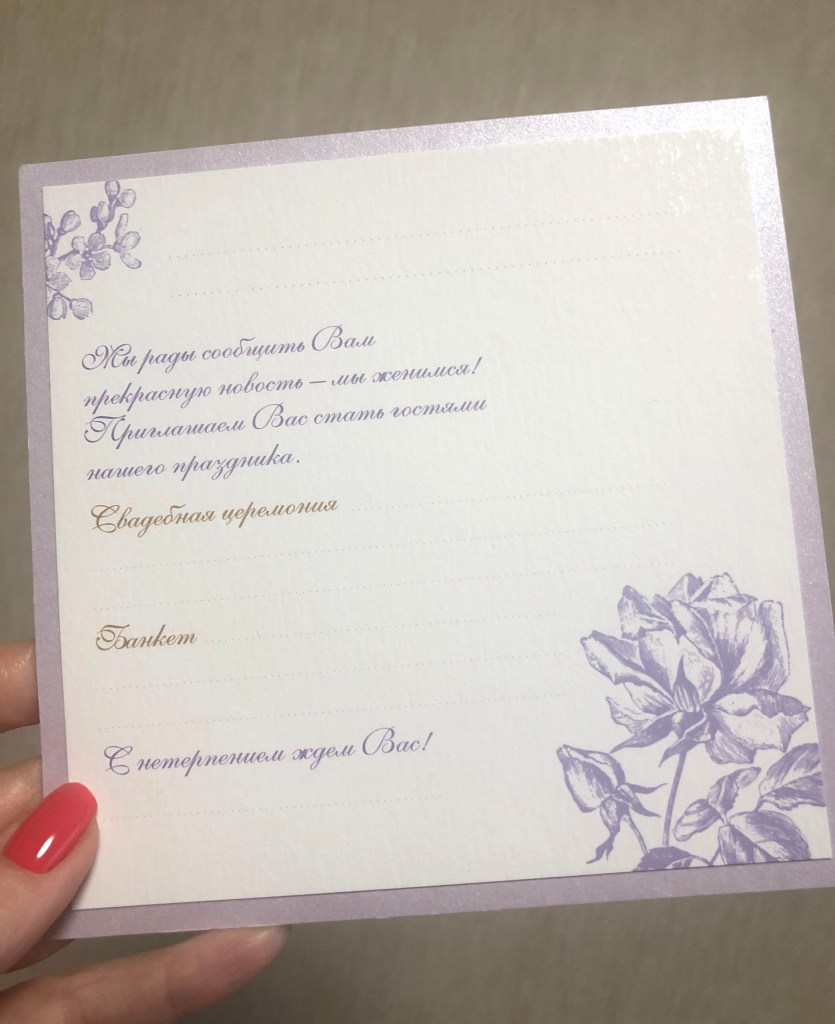 Мы рады сообщить Вам
прекрасную новость – мы женимся!
Приглашаем Вас стать гостями
нашего праздника.
Свадебная церемония
Банкет
С нетерпением ждем Вас!